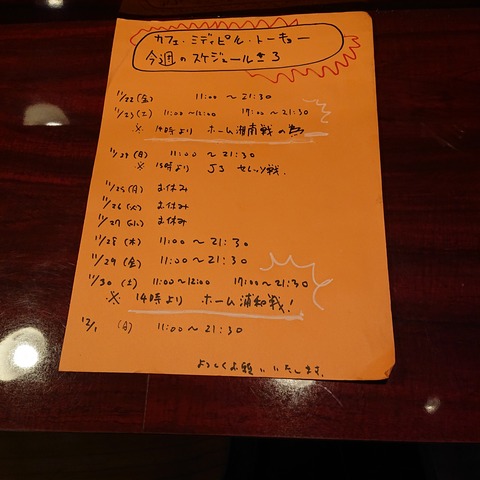 カフェ・ミディピル・トーキョー
今週のスケジュール
11/22(金) 11:00〜21:30
11/23(土) 11:00〜12:00 17:00〜21:30
※ 14時より ホーム湘南戦の為
11/24(日) 11:00〜21:30
※ 13時より J3 セレッソ戦.
11/25(月) お休み
11/26(火) お休み
11/27(水) お休み
11/28(木) 11:00〜21:30
11/29(金) 11:00〜21:30
11/30(土) 11:00〜12:00 17:00〜21:30
※ 14時より ホーム浦和戦!
12/1 (日) 11:00〜21:30
よろしくお願いいたします.